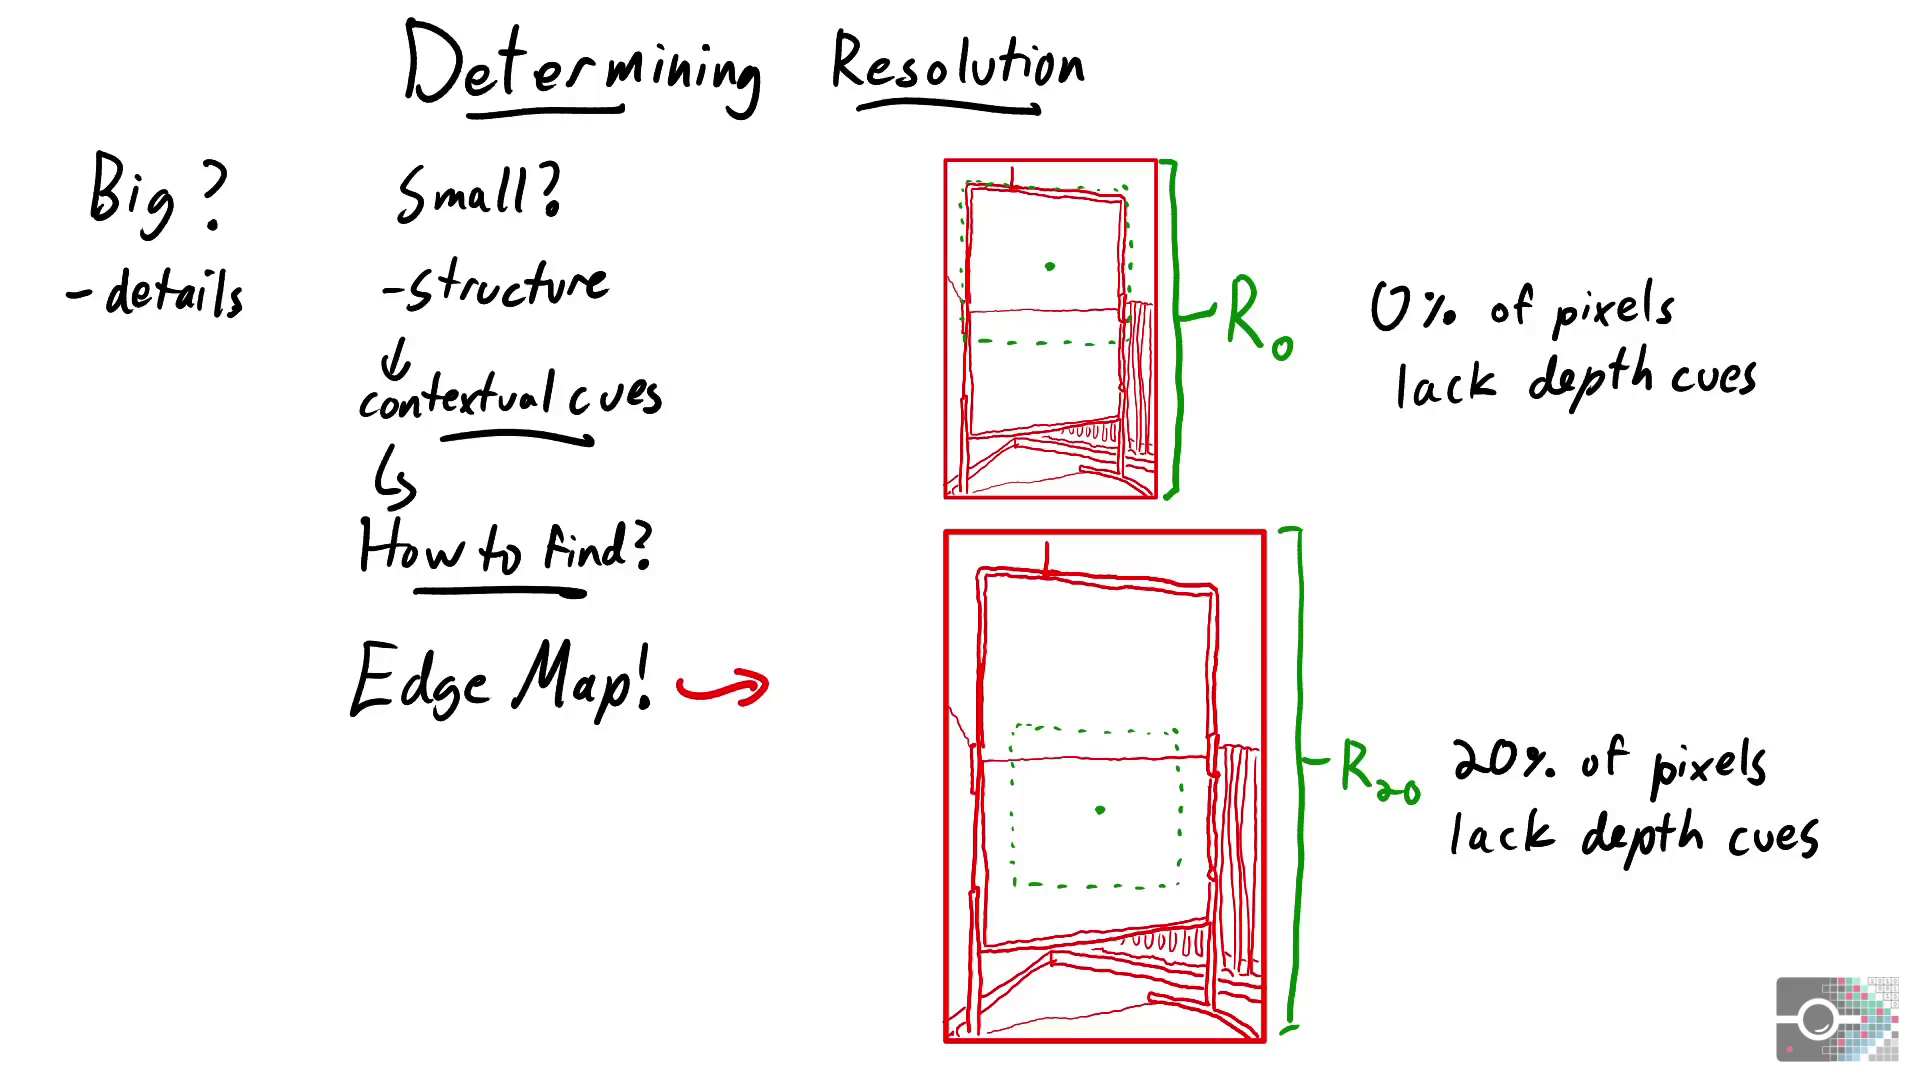 Determining Resolution
Big?
- details
Small?
- structure
contextual cues
How to find?
Edge Map!
R0
0% of pixels
lack depth cues
R20
20% of pixels
lack depth cues